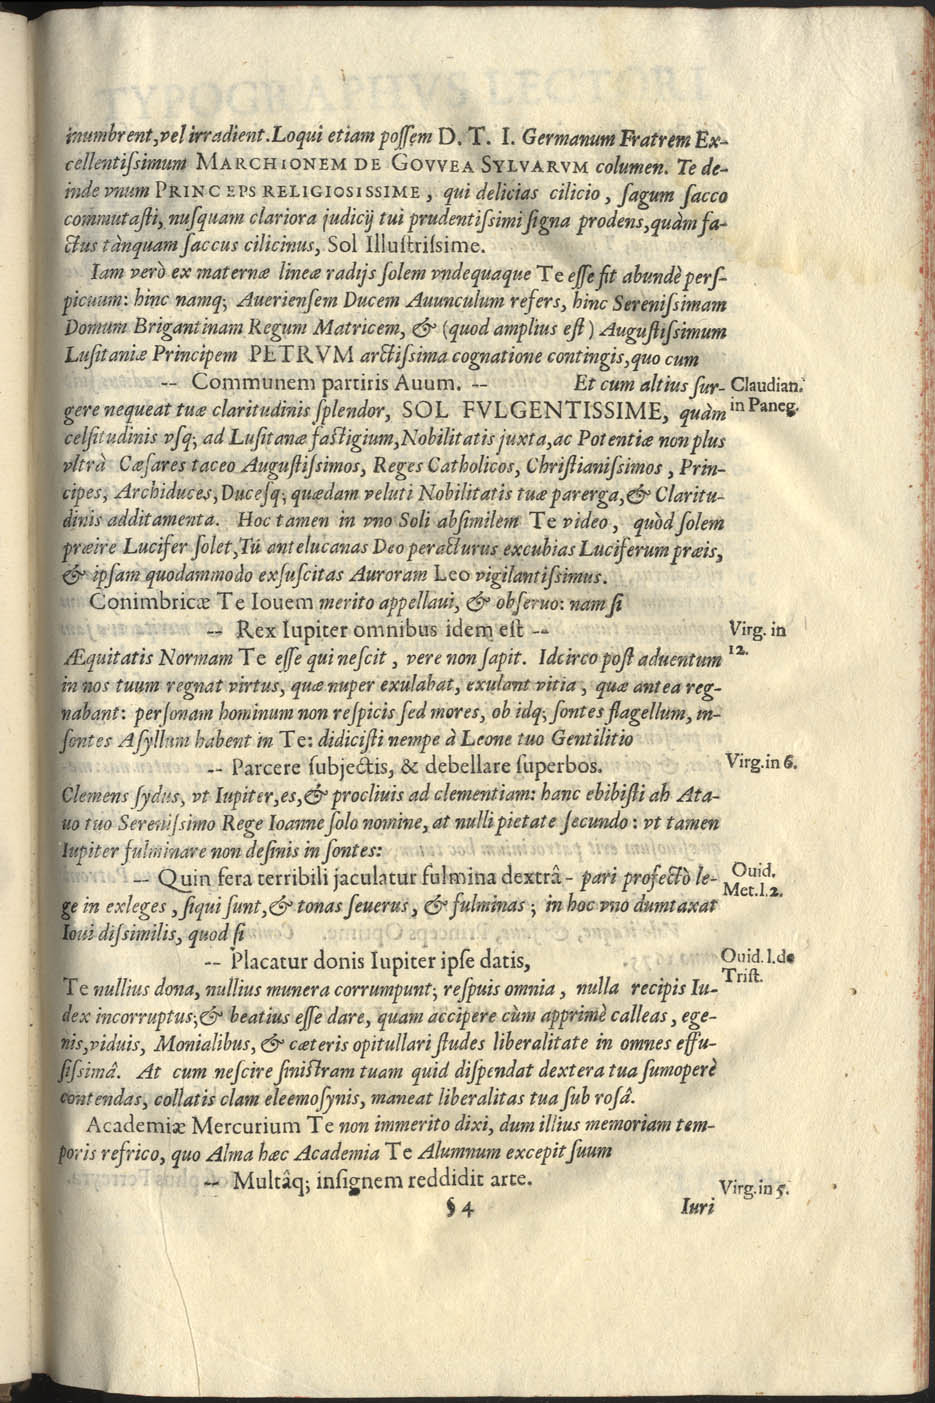 inumbrent, vel irradient. Loqui etiam possem D. T. I. Germanum Fratrem Ex-
cellentissimum MARCHIONEM DE GOVVEA SYLVARVM columen. Te de-
inde vnum PRINCEPS RELIGIOSISSIME, qui delicias cilicio, sagum sacco
commutasti, nusquam clariora judicij tui prudentissimi signa prodens, quàm fa-
ctus tànquam saccus cilicinus, Sol Illustrissime.
Iam verò ex maternæ lineæ radijs solem vndequaque Te esse fit abundè pers-
picuum: hinc namq; Averiensem Ducem Avunculum refers, hinc Serenissimam
Domum Brigantinam Regum Matricem, & (quod amplius est) Augustissimum
Lusitaniæ Principem PETRVM arctissima cognatione contingis, quo cum
-- Communem partiris Auum. -- Et cum altius sur- Claudian.
gere nequeat tuæ claritudinis splendor, SOL FVLGENTISSIME, quàm in Paneg.
celsitudinis vsq; ad Lusitanæ fastigium, Nobilitatis juxta, ac Potentiæ non plus
vltrà Cæsares taceo Augustissimos, Reges Catholicos, Christianissimos, Prin-
cipes, Archiduces, Ducesq; quædam veluti Nobilitatis tuæ parerga, & Claritu-
dinis additamenta. Hoc tamen in vno Soli absimilem Te video, quòd solem
præire Lucifer solet, Tú antelucanas Deo peracturus excubias Luciferum præis,
& ipsam quodammodo exsuscitas Auroram Leo vigilantissimus.
Conimbricæ Te Iouem merito appellaui, & obseruo: nam si
-- Rex Iupiter omnibus idem est -- Virg. in
12.
Æquitatis Normam Te esse qui nescit, vere non sapit. Idcirco post aduentum
in nos tuum regnat virtus, quæ nuper exulabat, exulant vitia, quæ antea reg-
nabant: personam hominum non respicis sed mores, ob idq; sontes flagellum, in-
sontes Asyllum habent in Te: didicisti nempe à Leone tuo Gentilitio
-- Parcere subjectis, & debellare superbos. Virg. in 6.
Clemens sydus, vt Iupiter, es, & procliuis ad clementiam: hanc ebibisti ab Ata-
uo tuo Serenissimo Rege Ioanne solo nomine, at nulli pietate secundo: vt tamen
Iupiter fulminare non desinis in sontes:
-- Quin fera terribili jaculatur fulmina dextrâ - pari profectò le- Ouid.
Met. l. 2.
ge in exleges, siqui sunt, & tonas seuerus, & fulminas; in hoc vno dumtaxat
Ioui dissimilis, quod si
-- Placatur donis Iupiter ipse datis, Ouid. l. de
Trist.
Te nullius dona, nullius munera corrumpunt; respuis omnia, nulla recipis Iu-
dex incorruptus; & beatius esse dare, quam accipere cùm apprimè calleas, ege-
nis, viduis, Monialibus, & cæteris opitullari studes liberalitate in omnes effu-
sissimâ. At cum nescire sinistram tuam quid dispendat dextera tua sumoperè
contendas, collatis clam eleemosynis, maneat liberalitas tua sub rosâ.
Academiæ Mercurium Te non immerito dixi, dum illius memoriam tem-
poris refrico, quo Alma hæc Academia Te Alumnum excepit suum
-- Multâq; insignem reddidit arte. Virg. in 5.
§ 4 Iuri